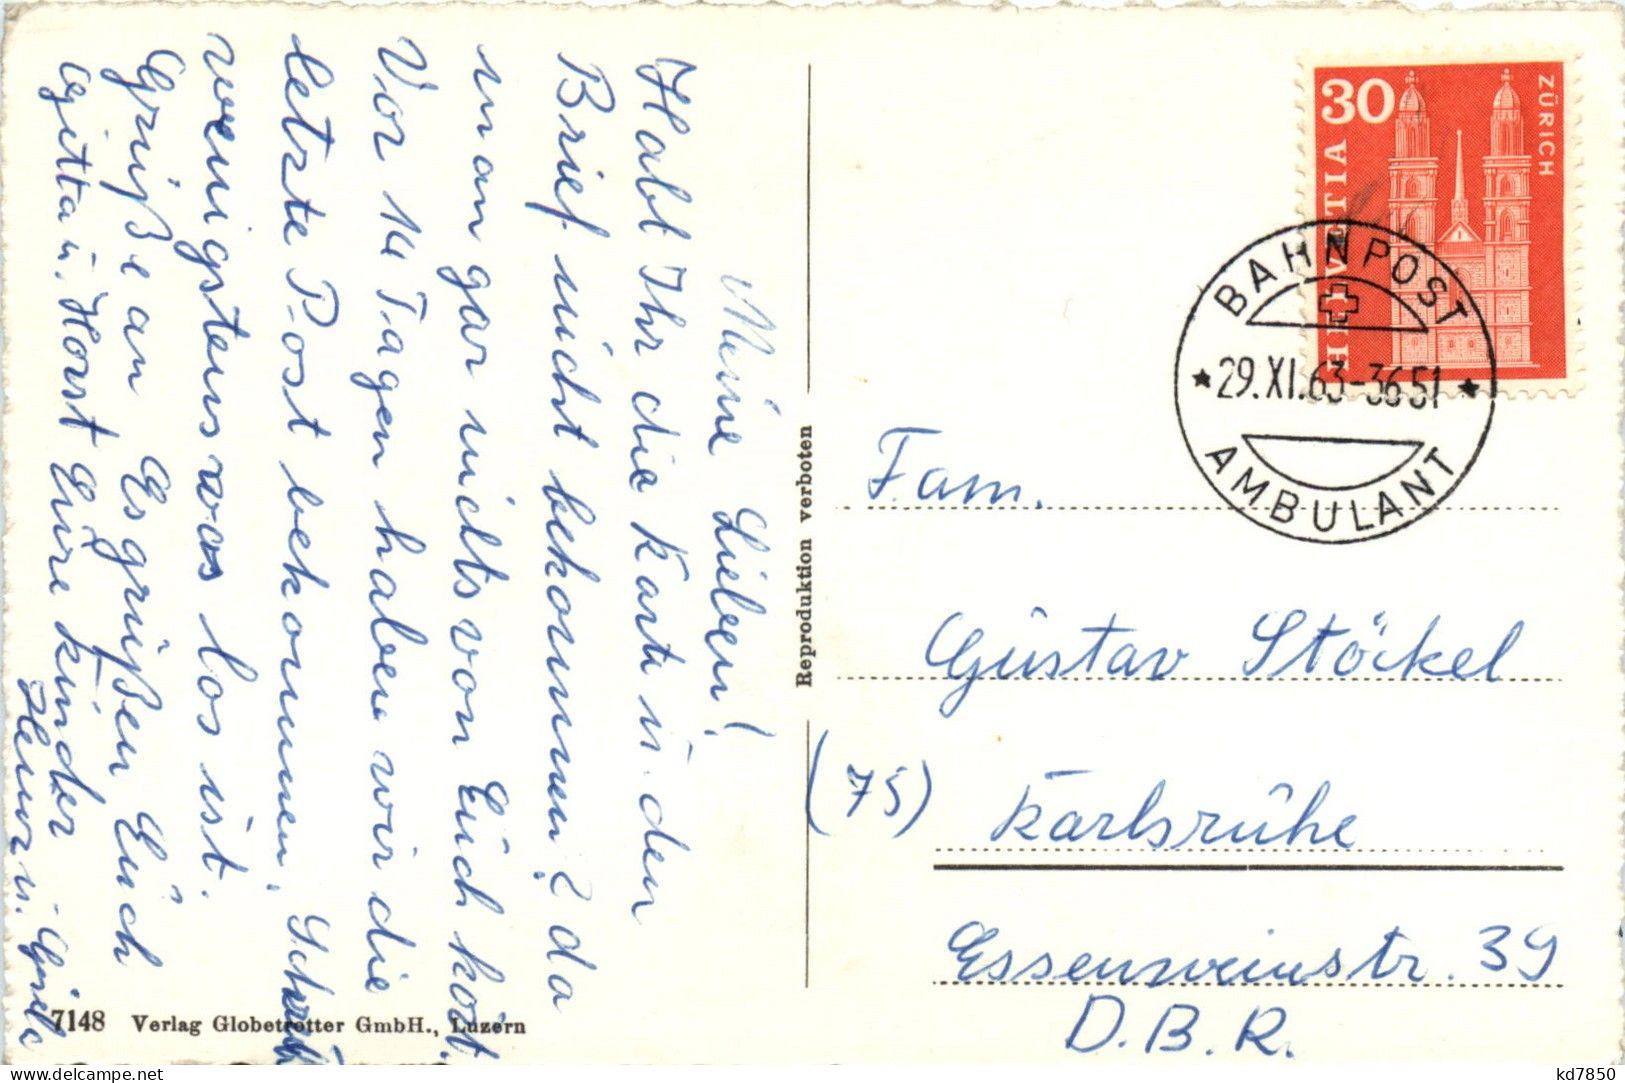 Meine Lieben!
Habt Ihr die Karte u. den
Brief nicht bekommen? da
man gar nichts von Euch hört.
Vor 14 Tagen haben wir die
letzte Post bekommen. Schreibt
wenigstens was los ist.
Grüße an Es grüßen Euch
Gitta u. Horst Eure Kinder
Heinz u.
7148 Verlag Globetrotter GmbH., Luzern
Reproduktion verboten
30
HELVETIA
ZÜRICH
BAHNPOST
29.XI.63-3651
AMBULANT
Fam.
Gustav Stöckel
(75) Karlsruhe
Essenweinstr. 39
D.B.R.
kd7850